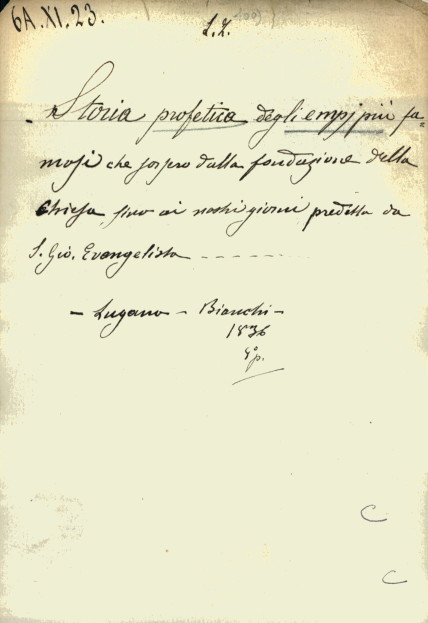 6A.XI.23.
L.Z.
Storia profetica degli empj più fa-
mosi che sorsero dalla fondazione della
Chiesa, fino ai nostri giorni predetta da
S. Gio. Evangelista - - - - - - -
- Lugano - Bianchi -
1836
8º p.
C
C